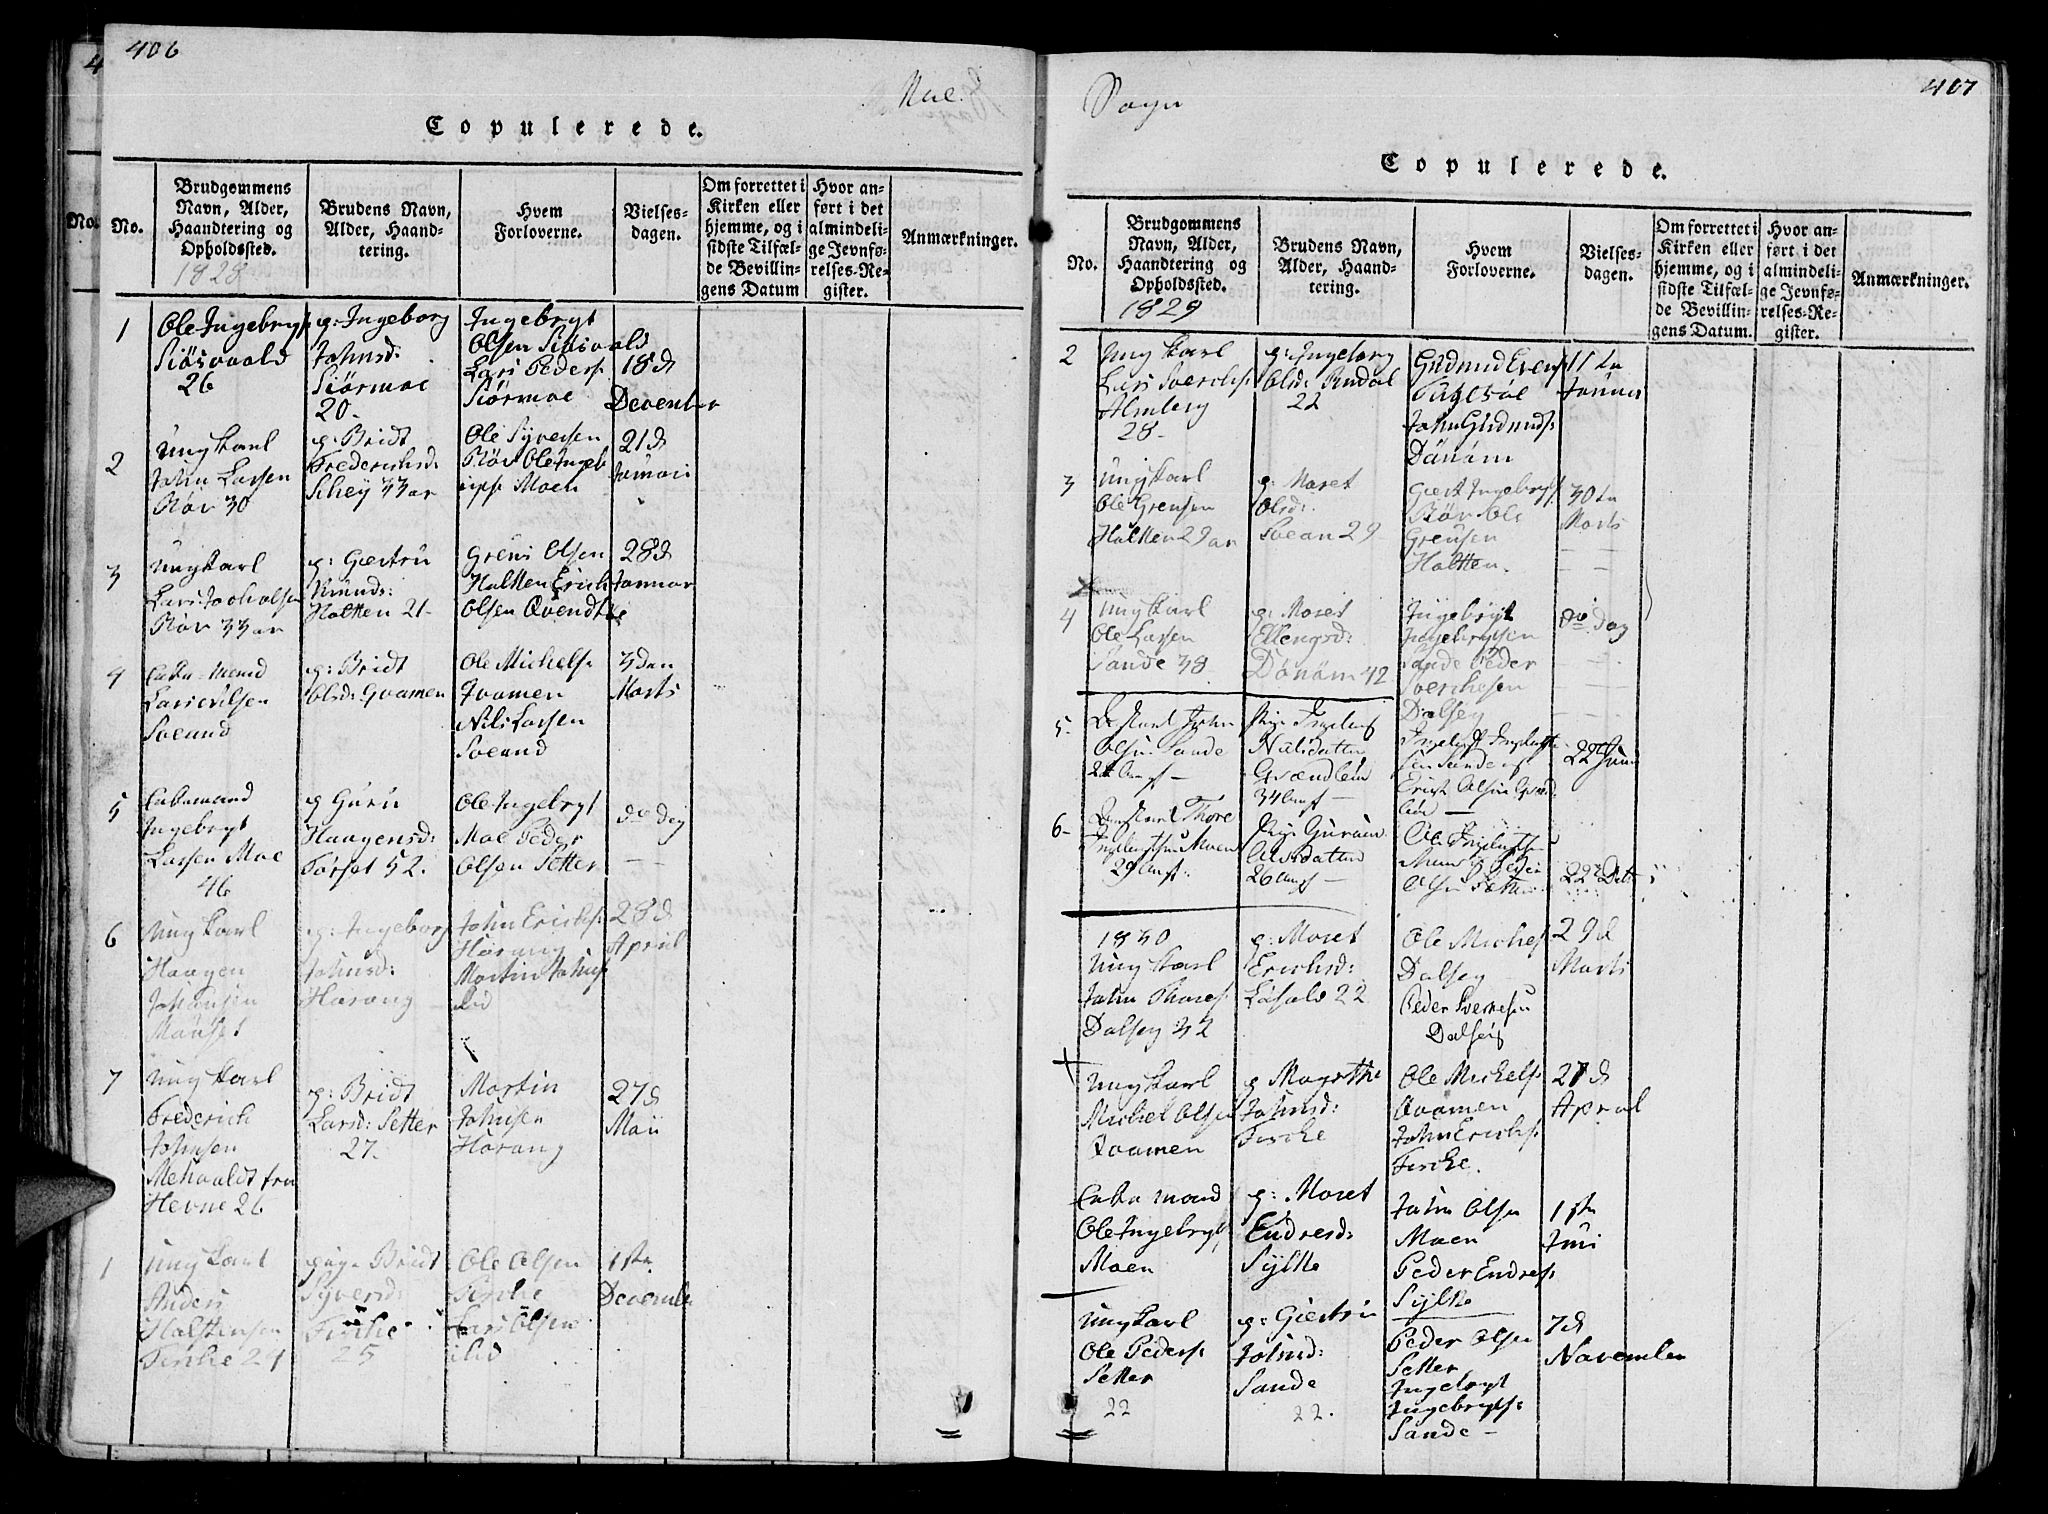 406
Moe.
Copulerede.
No.
No.
Brudgommens Navn, Alder, Haandtering og Opholdssted.
Brudens Navn, Alder, Haandtering.
Hvem Forloverne.
Vielsesdagen.
Om forrettet i Kirken eller hjemme, og i sidste Tilfælde Bevillingens Datum
Hvor anført i det almindelige Jevnførelses-Register.
Anmærkninger.
1828
1
Ole Ingebrygts
Siøsvold
26
p: Ingeborg
Johnsd:
Siørmoe
20-
Ingebrygt
Olsen Siøsvold
Lars Peders:
Siørmoe
18d
December
2
Ungkarl
John Larsen
Røv 30
p: Bridt
Frederichsd:
Schey 33 ar
Ole Syversen
Røv Ole Ingeb
Moen
21d
Januari
3
Ungkarl
Lars Jacobsen
Røv 33 ar
p: Giertru
Knuds:
Holtten 21-
Grens Olsen
Holtten Erich
Olsen Qvendtbø
28d
Januar
4
Enkemand
Lars Nilsen
Soeund
p: Bridt
Olsd: Qvamen
Ole Michels:
Qvamen
Nils Larsen
Soeund
3den
Marts
5
Enkemand
Ingebrygt
Larsen Moe
46
p Guru
Haagensd:
Torset 52.
Ole Ingebrygt
Moe Peder
Olsen Setter
do dag
6
Ungkarl
Haagen
Johansen
Mauset
p: Ingeborg
Johnsd:
Harang
John Erichs:
Harang
Mortin Johns
ibid
28d
April
7
Ungkarl
Frederich
Johnsen
Mehvoldt fra
Hevne 26
p: Bridt
Larsd: Setter
27.
Mortin
Johnsen
Harang
27d
Maii
1
Ungkarl
Anders
Halstensen
Fische 24
pige Bridt
Syversd:
Fische
25
Ole Olsen
Fische
Lars Olsen
ibid
1ste
December
407
Sogn
Copulerede.
No.
Brudgommens Navn, Alder, Haandtering og Opholdssted.
Brudens Navn, Alder, Haandtering.
Hvem Forloverne.
Vielsesdagen.
Om forrettet i Kirken eller hjemme, og i sidste Tilfælde Bevillingens Datum.
Hvor anført i det almindelige Jevnførelses-Register.
Anmærkninger.
1829
2
Ungkarl
Lars Sverchs:
Almberg
28-
p: Ingeborg
Olsd: Rindal
22
Gudmund Evens
John Gudmuds:
Dønem
11te
Januar
3
Ungkarl
Ole Grensen
Holtten 29 ar
p: Maret
Olsd:
Soean 29
Giert Ingebrygts
Røv Ole
Grensen
Holtten.
30te
Marts
4
Ungkarl
Ole Larsen
Sande 38
p: Maret
Ellengsd:
Dønem 42
Ingebrygt
Ingebrygtsen
Sande Peder
Sverchesen
Dalsey
do dag
5-
Ungkarl John
Olsen Sande
Pige Ingeborg
Nilsdatter
Qvændbøn
34 Aar
Erich Olsen
22 Juni
6-
Ungkarl Thore
Ingebrigtsen Moen
29 Aar
Pige Guruen
Olsdatter
26 Aar
Ole Ingebrigtsen
Moen Peder
Olsen Setter
22
1830
Ungkarl
John Thores:
Dalsey 32
p: Maret
Erichsd:
Løsold 22
Ole Michels
Dalsey
Peder Sverkesen
Dalsey
29d
Marts
Ungkarl
Michel Olsen
Qvamen
p Magrethe
Johnsd:
Fische
Ole Michels:
Qvamen
John Erichs:
Fische.
27d
April
Enkemand
Ole Ingebrygts
Moen
p: Maret
Endresd:
Sylte
John Olsen
Moen
Peder Endres:
Sylte
1ste
Juni
Ungkarl
Ole Peders:
Setter
22
p: Giertru
Johnsd:
Sande
22.
Peder Olsen
Setter
Ingebrygt
Ingebrygts:
Sande-
7d
November